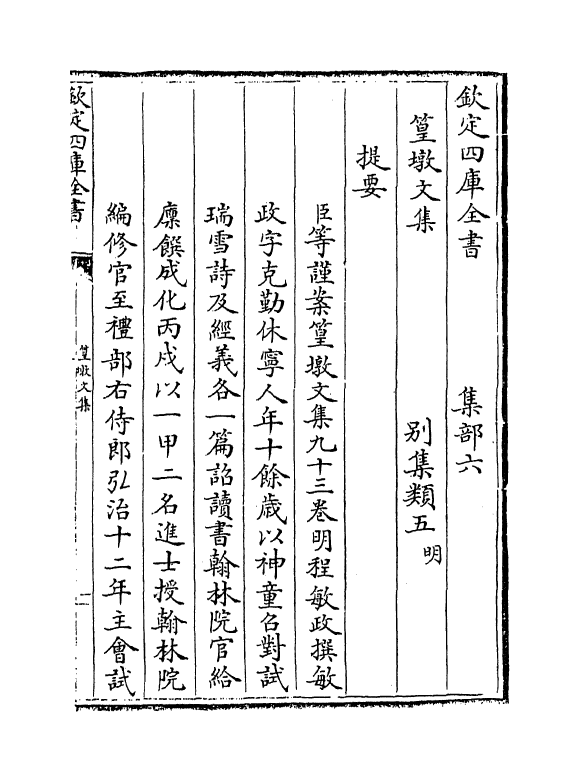 欽定四庫全書　　　　集部六
篁墩文集　　　　别集類五明
提要
臣等謹案篁墩文集九十三卷明程敏政撰敏
政字克勤休寧人年十餘歲以神童召對試
瑞雪詩及經義各一篇詔讀書翰林院官給
廩饌成化丙戌以一甲二名進士授翰林院
編修官至禮部右侍郎弘治十二年主會試
欽定四庫全書
篁墩文集